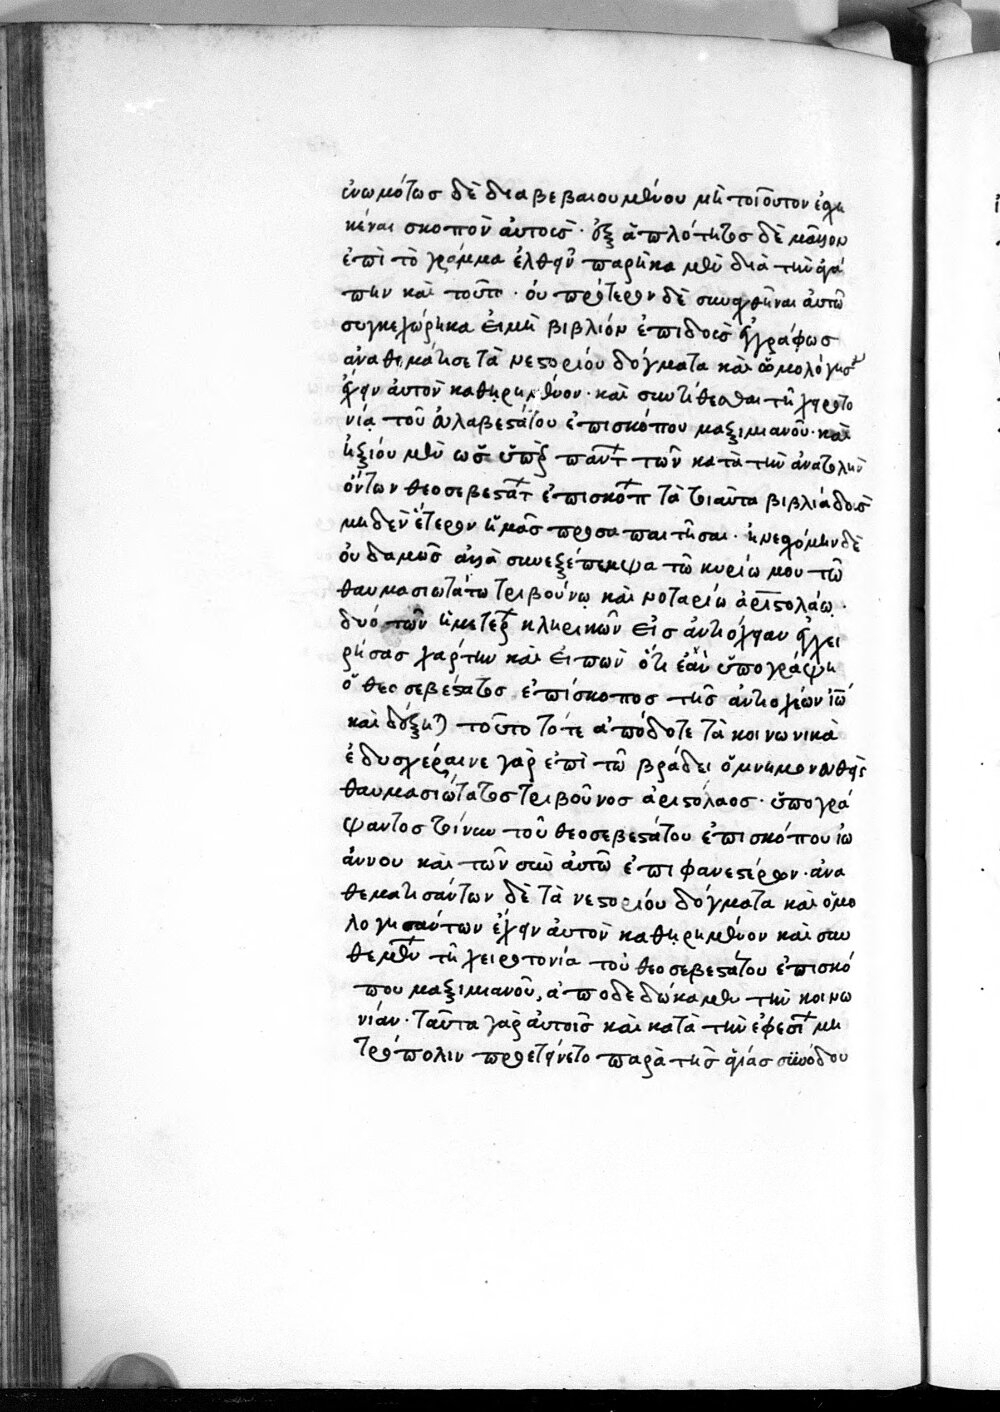 ἐνωμότως δὲ διαβεβαιουμένου μὴ τοιοῦτον ἐσχη
κέναι σκοπὸν αὐτοὺς · ἐξ ἁπλότητος δὲ μᾶλλον
ἐπὶ τὸ γράμμα ἐλθεῖν παρῆκα μὲν διὰ τὴν ἀγά
πην καὶ τοῦτο · οὐ πρότερον δὲ συναχθῆναι αὐτῶ
συγκεχώρηκα εἰ μὴ βιβλίον ἐπιδοὺς ἐγγράφως
ἀναθεμάτισε τὰ νεστορίου δόγματα καὶ ὡμολόγησεν
ἔχειν αὐτὸν καθηρημένον · καὶ συντίθεσθαι τῆ χειροτο
νία τοῦ εὐλαβεστάτου ἐπισκόπου μαξιμιανοῦ · καὶ
ἠξίου μὲν ὡς ὑπὲρ πάντ τῶν κατὰ τὴν ἀνατολὴν
ὄντων θεοσεβεστάτ ἐπισκόπ τὰ τοιαῦτα βιβλία δοὺς
μηδὲν ἕτερον ἡμᾶς προσαπαιτῆσαι · ἠνεσχόμην δὲ
οὐδαμῶς ἀλλὰ συνεξέπεμψα τῶ κυρίω μου τῶ
θαυμασιωτάτω τριβούνω καὶ νοταρίω ἀριστολάω ·
δυό τῶν ἡμετέρ κληρικῶν εἰς ἀντιόχειαν ἐγχει
ρήσας χάρτην καὶ εἰπὼν ὅτι ἐὰν ὑπογράψη
ὁ θεοσεβέστατος ἐπίσκοπος τῆς ἀντιοχέων ἰω
καὶ δόξηται τοῦτο τότε ἀπόδοτε τὰ κοινωνικὰ
ἐδυσχέραινε γὰρ ἐπὶ τῶ βράδει ὁ μνημονευθεὶς
θαυμασιώτατος τριβοῦνος ἀριστόλαος · ὑπογρά
ψαντος τοίνυν τοῦ θεοσεβεστάτου ἐπισκόπου ἰω
άννου καὶ τῶν σὺν αὐτῶ ἐπιφανεστέρων · ἀνα
θεματισάντων δὲ τὰ νεστορίου δόγματα καὶ ὁμο
λογησάντων ἔχειν αὐτὸν καθηρημένον καὶ συν
θεμέν τῆ χειροτονία τοῦ θεοσεβεστάτου ἐπισκό
που μαξιμιανοῦ, ἀποδεδώκαμεν τὴν κοινω
νίαν · ταῦτα γὰρ αὐτοῖς καὶ κατὰ τὴν ἐφεσί μη
τρόπολιν προετείνετο παρὰ τῆς ἁγίας συνόδου